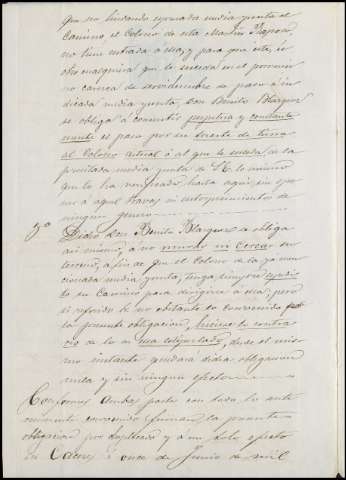 que no lindando expresada media yunta el
Camino, el Colono de esta
no tiene entrada a ella, y para que esta, ni
otro cualquiera que le suceda en el porvenir
no carezca de servidumbre de paso a in-
dicada media yunta, Don Benito Blazquez
se obliga a consentir perpetua y constante
mente el paso por su suerte de tierra
al Colono actual o al que le suceda en la
precitada media yunta de lo mismo
que lo ha verificado hasta aqui, sin opo-
ner a aquel trabas ni entorpecimientos de
ningun genero
3º Dicho Don Benito Blazquez se obliga
asi mismo, a no murar ni Cercar su
terreno, a fin de que el Colono de la ya men-
cionada media yunta, tenga siempre expedi-
to su Camino para dirigirse a ella; pero
si referido Sr. no obstante lo convenido
la presente obligacion, hiciese lo contra
rio de lo en ella estipulado, desde el mis
mo instante quedará dicha obligacion
nula y sin ningun efecto
Conformes Ambas partes con todo lo ante
riormente convenido, firman la presente
obligacion por duplicado y a un solo efecto
en a once de Junio de mil